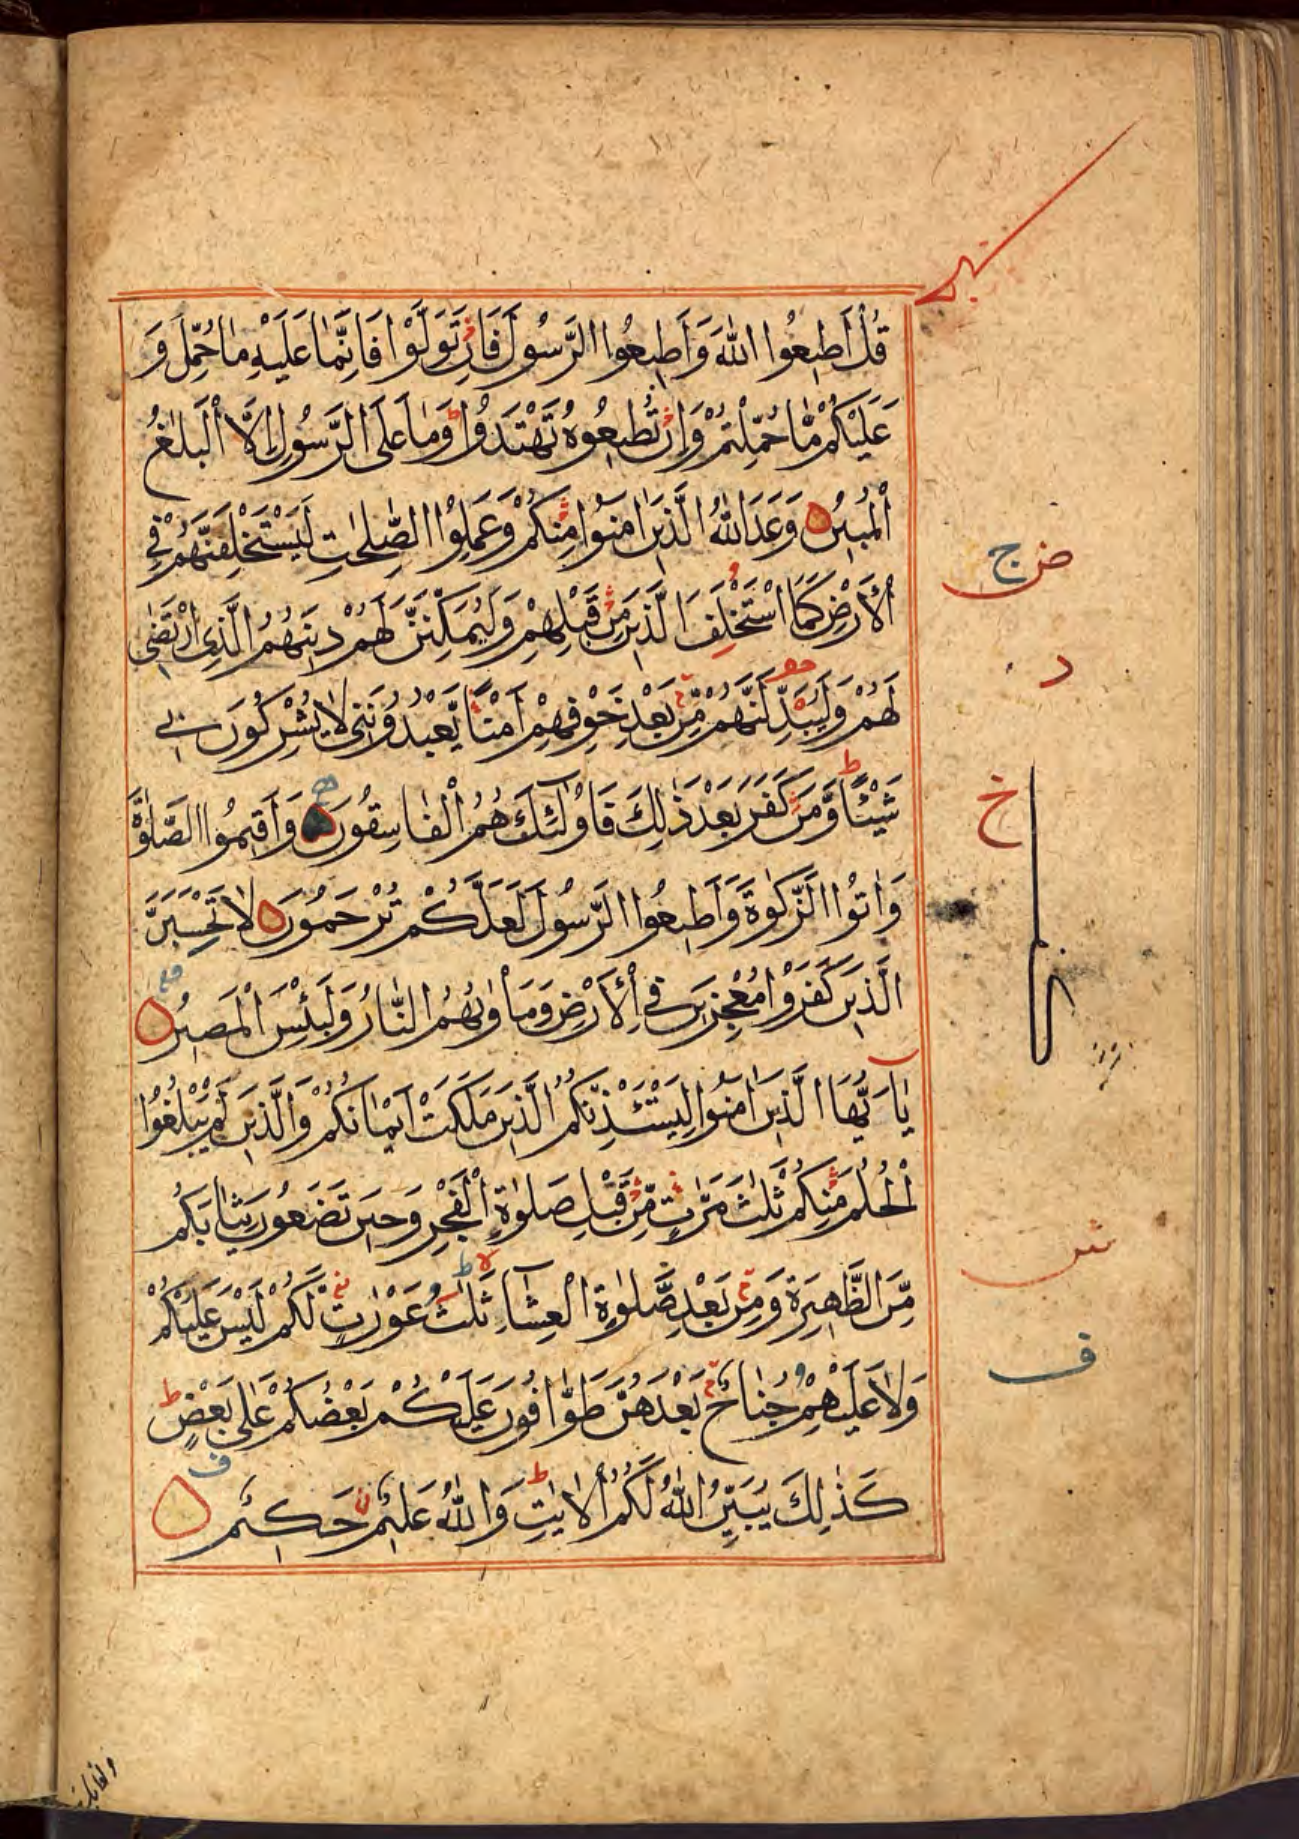 قُلْ أَطِيعُوا اللّٰهَ وَأَطِيعُوا الرَّسُولَ فَاِنْ تَوَلَّوْا فَاِنَّمَا عَلَيْهِ مَا حُمِّلَ وَ
عَلَيْكُمْ مَّا حُمِّلْتُمْ وَاِنْ تُطِيعُوهُ تَهْتَدُوا وَمَا عَلَى الرَّسُولِ اِلَّا الْبَلٰغُ
الْمُبِينُ وَعَدَ اللّٰهُ الَّذِينَ اٰمَنُوا مِنْكُمْ وَعَمِلُوا الصّٰلِحٰتِ لَيَسْتَخْلِفَنَّهُمْ فِي
الْأَرْضِ كَمَا اسْتَخْلَفَ الَّذِينَ مِنْ قَبْلِهِمْ وَلَيُمَكِّنَنَّ لَهُمْ دِينَهُمُ الَّذِي ارْتَضٰى
لَهُمْ وَلَيُبَدِّلَنَّهُمْ مِّنْ بَعْدِ خَوْفِهِمْ اَمْنًا يَّعْبُدُونَنِي لَا يُشْرِكُونَ بِي
شَيْئًا وَّمَنْ كَفَرَ بَعْدَ ذٰلِكَ فَاُولٰئِكَ هُمُ الْفَاسِقُونَ وَاَقِيمُوا الصَّلٰوةَ
وَاٰتُوا الزَّكٰوةَ وَاَطِيعُوا الرَّسُولَ لَعَلَّكُمْ تُرْحَمُونَ لَا تَحْسَبَنَّ
الَّذِينَ كَفَرُوْا مُعْجِزِينَ فِي الْأَرْضِ وَمَأْوٰىهُمُ النَّارُ وَلَبِئْسَ الْمَصِيرُ
يٰاَيُّهَا الَّذِينَ اٰمَنُوا لِيَسْتَئْذِنْكُمُ الَّذِينَ مَلَكَتْ اَيْمَانُكُمْ وَالَّذِينَ لَمْ يَبْلُغُوا
الْحُلُمَ مِنْكُمْ ثَلٰثَ مَرّٰتٍ مِّنْ قَبْلِ صَلٰوةِ الْفَجْرِ وَحِينَ تَضَعُونَ ثِيَابَكُمْ
مِّنَ الظَّهِيرَةِ وَمِنْ بَعْدِ صَّلٰوةِ الْعِشَاءِ ثَلٰثُ عَوْرٰتٍ لَّكُمْ لَيْسَ عَلَيْكُمْ
وَلَا عَلَيْهِمْ جُنَاحٌ بَعْدَهُنَّ طَوّٰافُونَ عَلَيْكُمْ بَعْضُكُمْ عَلٰى بَعْضٍ
كَذٰلِكَ يُبَيِّنُ اللّٰهُ لَكُمُ الْاٰيٰتِ وَاللّٰهُ عَلِيمٌ حَكِيمٌ
ض ج
د
خ
ش
ف